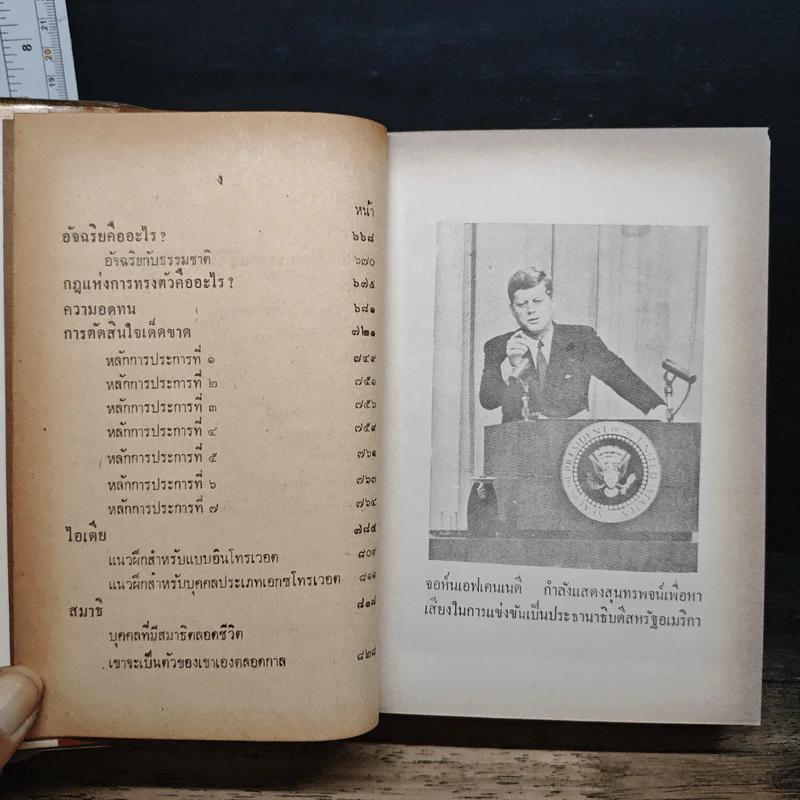 ง
หน้า
อัจฉริยคืออะไร ? ๖๖๘
อัจฉริยกับธรรมชาติ ๖๗๐
กฎแห่งการทรงตัวคืออะไร ? ๖๗๕
ความอดทน ๖๘๑
การตัดสินใจเด็ดขาด ๗๒๑
หลักการประการที่ ๑ ๗๔๙
หลักการประการที่ ๒ ๗๕๑
หลักการประการที่ ๓ ๗๕๖
หลักการประการที่ ๔ ๗๕๙
หลักการประการที่ ๕ ๗๖๑
หลักการประการที่ ๖ ๗๖๓
หลักการประการที่ ๗ ๗๖๔
ไอเดีย ๗๘๕
แนวฝึกสำหรับแบบอินโทรเวอต ๘๐๙
แนวฝึกสำหรับบุคคลประเภทเอกซโทรเวอต ๘๑๑
สมาธิ ๘๑๘
บุคคลที่มีสมาธิตลอดชีวิต
เขาจะเป็นตัวของเขาเองตลอดกาล ๘๒๘
SEAL OF THE PRESIDENT OF THE UNITED STATES
จอห์นเอฟเคนเนดี กำลังแสดงสุนทรพจน์เพื่อหา
เสียงในการแข่งขันเป็นประธานาธิบดีสหรัฐอเมริกา
8
21
20
19